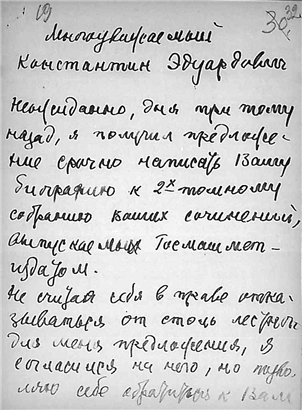 19
32
30
Многоуважаемый
Константин Эдуардович
Неожиданно, дня три тому
назад, я получил предложе-
ние срочно написать Вашу
биографию к 2х томному
собранию ваших сочинений,
выпускаемых Госмашмет-
издатом.
Не считая себя в праве отка-
зываться от столь лестного
для меня предложения, я
согласился на него, но позво-
ляю себе обратиться к Вам